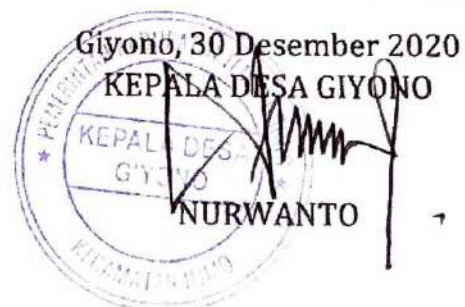 Giyono, 30 Desember 2020
KEPALA DESA GIYONO
KEPALA DESA
GIYONO
NURWANTO
KECAMATAN JUMO